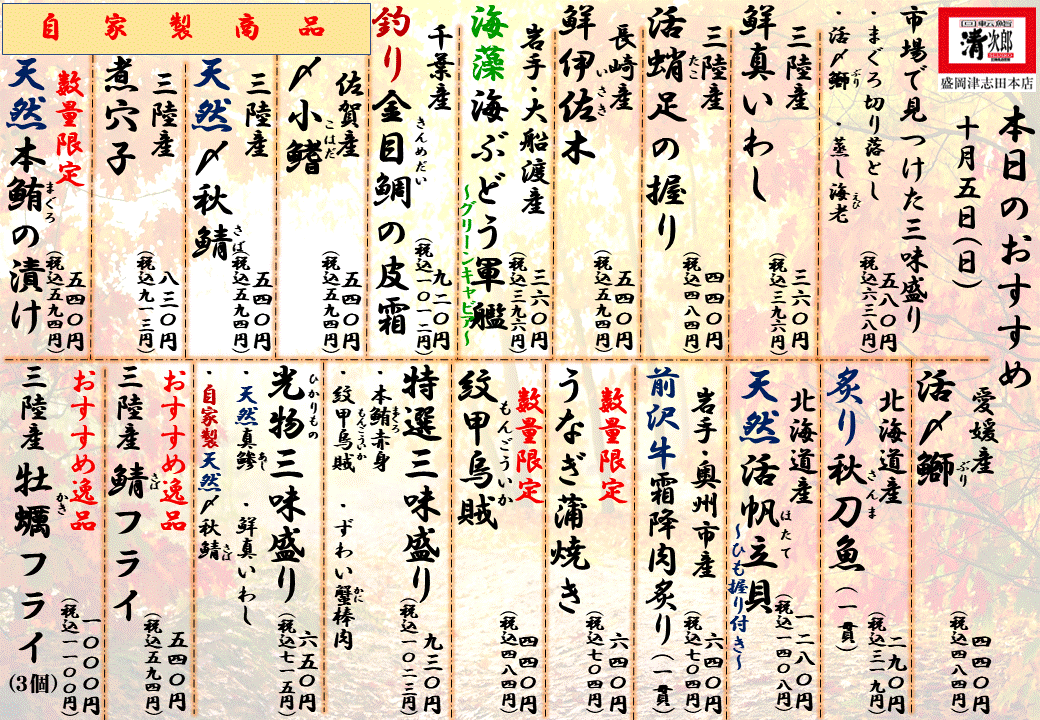 回転鮨
清次郎
盛岡津志田本店
本日のおすすめ
十月五日(日)
市場で見つけた三味盛り
・まぐろ切り落とし
・活〆鰤 ・蒸し海老
ぶり
えび
五八〇円
(税込六三八円)
三陸産
鮮真いわし
三六〇円
(税込三九六円)
三陸産
活蛸足の握り
たこ
四四〇円
(税込四八四円)
長崎産
鮮伊佐木
いさき
五四〇円
(税込五九四円)
岩手・大船渡産
海藻海ぶどう軍艦
~グリーンキャビア~
三六〇円
(税込三九六円)
千葉産
釣り金目鯛の皮霜
きんめだい
九二〇円
(税込一〇一二円)
自家製商品
佐賀産
〆小鰭
こはだ
五四〇円
(税込五九四円)
三陸産
天然〆秋鯖
さば
五四〇円
(税込五九四円)
三陸産
煮穴子
八三〇円
(税込九一三円)
数量限定
天然本鮪の漬け
まぐろ
五四〇円
(税込五九四円)
愛媛産
活〆鰤
ぶり
四四〇円
(税込四八四円)
北海道産
炙り秋刀魚(一貫)
さんま
二九〇円
(税込三一九円)
北海道産
天然活帆立貝
ほたて
~ひも握り付き~
一二八〇円
(税込一四〇八円)
岩手・奥州市産
前沢牛霜降肉炙り(一貫)
六四〇円
(税込七〇四円)
数量限定
うなぎ蒲焼き
六四〇円
(税込七〇四円)
数量限定
紋甲烏賊
もんごういか
四四〇円
(税込四八四円)
特選三味盛り
・本鮪赤身 ・ずわい蟹棒肉
まぐろ
かに
・紋甲烏賊
もんごういか
九三〇円
(税込一〇二三円)
光物三味盛り
ひかりもの
・天然真鰺 ・鮮真いわし
あじ
・自家製天然〆秋鯖
さば
六五〇円
(税込七一五円)
おすすめ逸品
三陸産 鯖フライ
さば
五四〇円
(税込五九四円)
おすすめ逸品
三陸産 牡蠣フライ(3個)
かき
一〇〇〇円
(税込一一〇〇円)